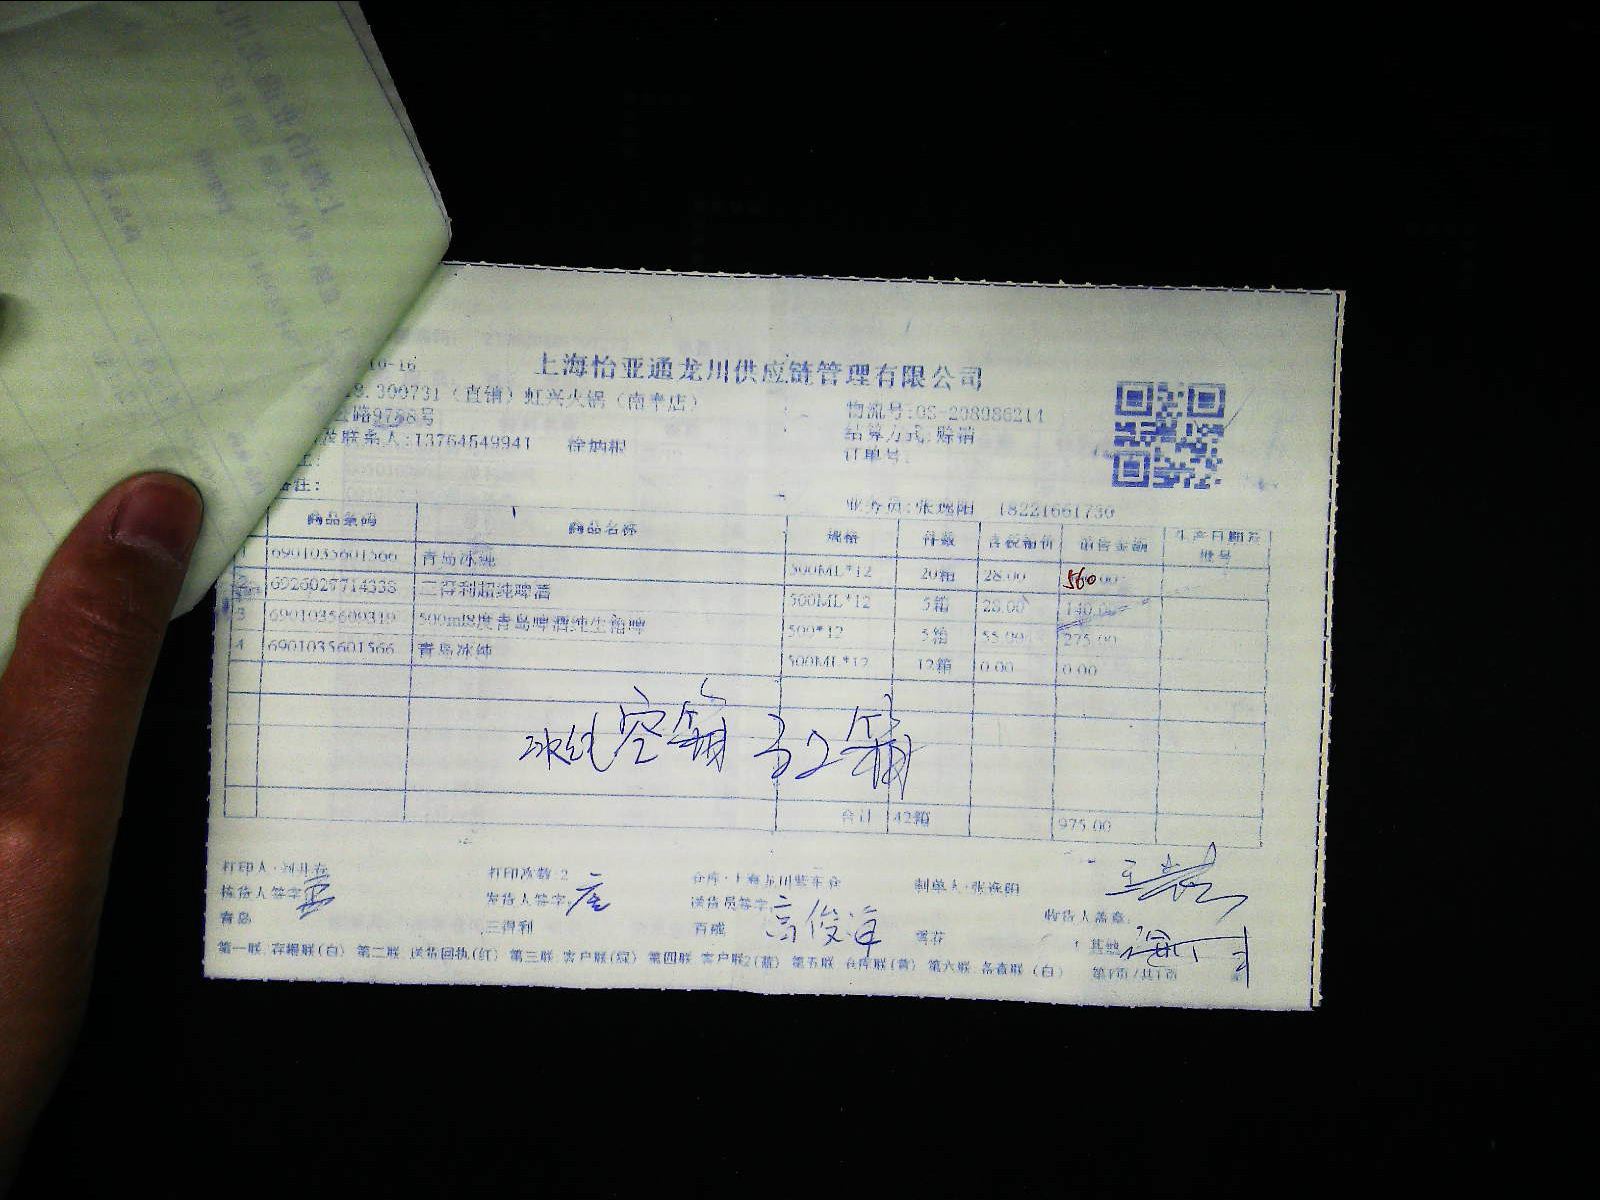 10-16 上海怡亚通龙川供应链管理有限公司
300731 (直销) 虹兴火锅 (南奉店) 物流号:OS-208986214
路9758号 结算方式:赊销
联系人:13764549941 徐炳根 订单号:
注:
备注: 业务员:张逸阳 18221661730
商品条码 商品名称 规格 件数 含税箱价 销售金额 生产日期及批号
1 6901035601566 青岛冰纯 500ML*12 20箱 28.00 560
2 6926027714338 三得利超纯啤酒 500ML*12 5箱 28.00 140.00
3 6901035609319 500ml8度青岛啤酒纯生箱啤 500*12 5箱 55.00 275.00
4 6901035601566 青岛冰纯 500ML*12 12箱 0.00 0.00
冰纯空箱 32箱
合计 42箱 975.00
打印人: 打印次数:2 仓库: 制单人:张逸阳
拣货人签字: 发货人签字: 送货员签字: 高俊海 收货人盖章:
青岛 三得利 百威 雪花 其他
第一联 存根联(白) 第二联 送货回执(红) 第三联 客户联(绿) 第四联 客户联2(蓝) 第五联 仓库联(黄) 第六联 备查联(白) 第1页/共1页